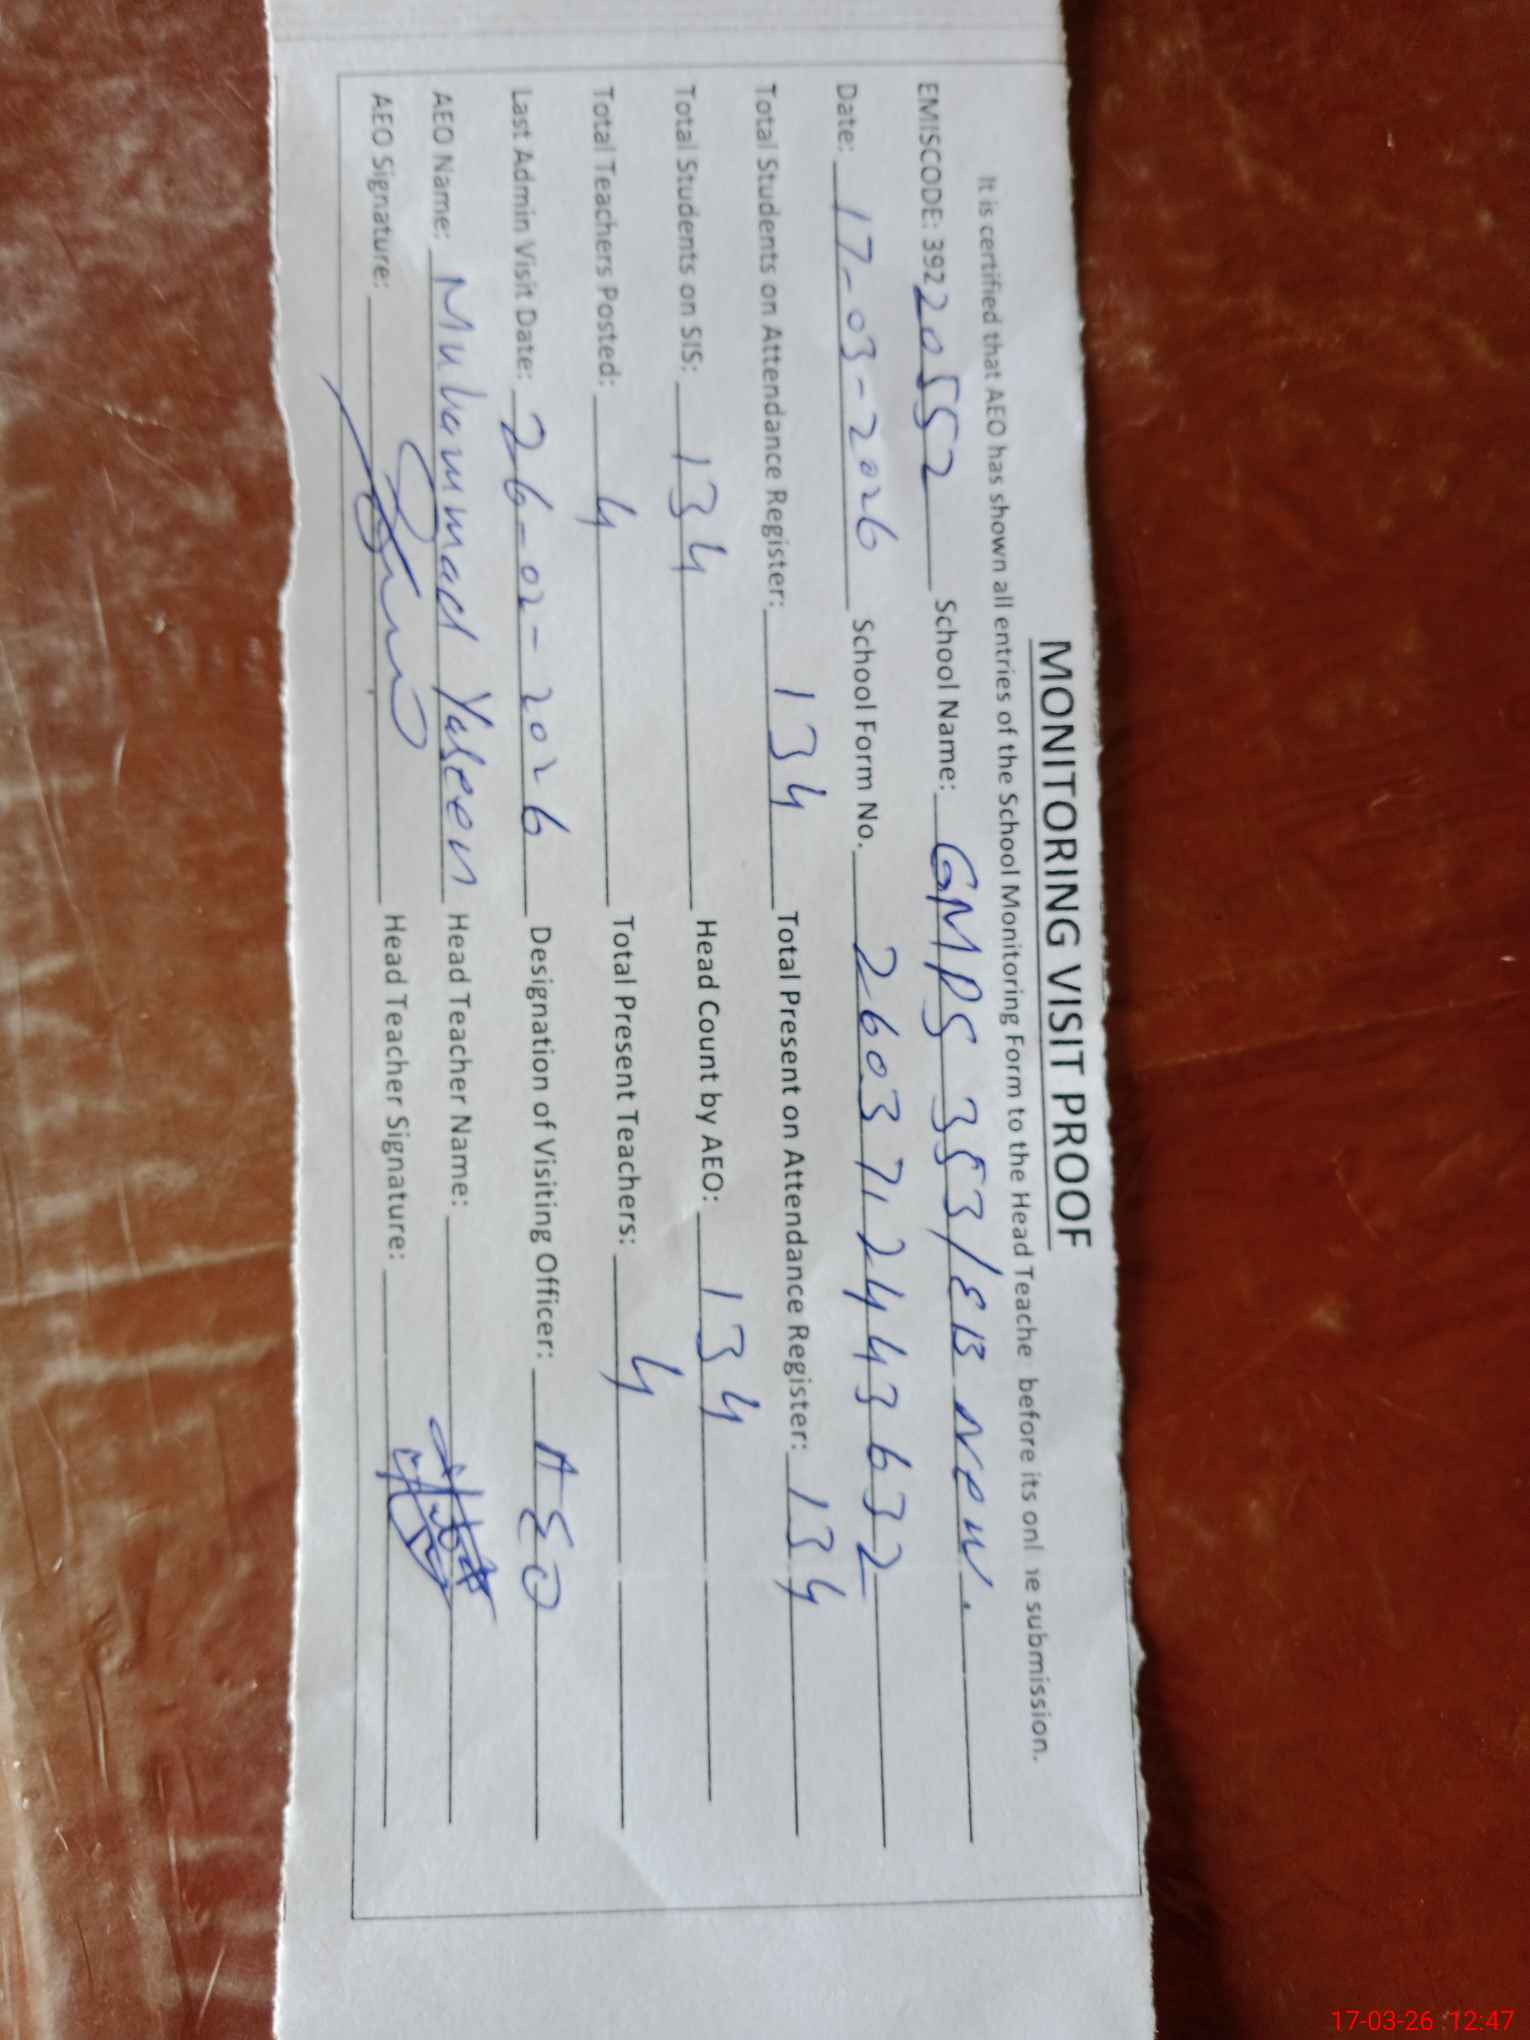 MONITORING VISIT PROOF
It is certified that AEO has shown all entries of the School Monitoring Form to the Head Teache before its onl ne submission.
EMISCODE: 39220552 School Name: GMPS 353/EB New.
Date: 17-03-2026 School Form No. 2603712443632
Total Students on Attendance Register: 134 Total Present on Attendance Register: 134
Total Students on SIS: 134 Head Count by AEO: 134
Total Teachers Posted: 4 Total Present Teachers: 4
Last Admin Visit Date: 26-02-2026 Designation of Visiting Officer: AEO
AEO Name: Muhammad Yaseen Head Teacher Name:
AEO Signature: Head Teacher Signature:
17-03-26 12:47